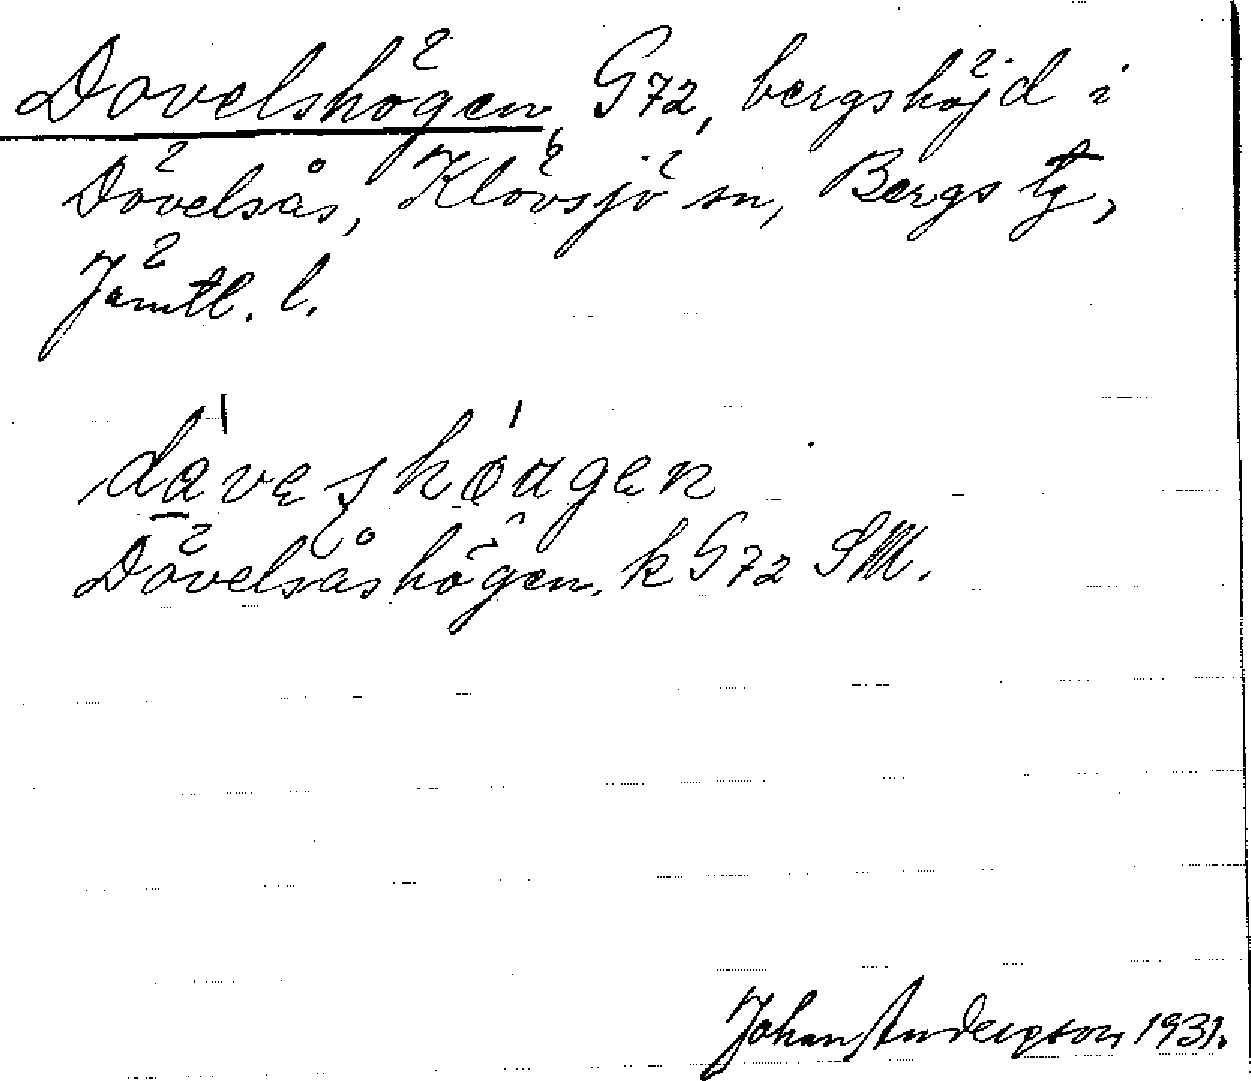 Dovelshögen, G72, bergshöjd i
Dövelsås, Klövsjö sn, Bergs tg,
Jämtl. l.
Dövelsåshögen. k G72 SM.
Johan Anderson 1931.